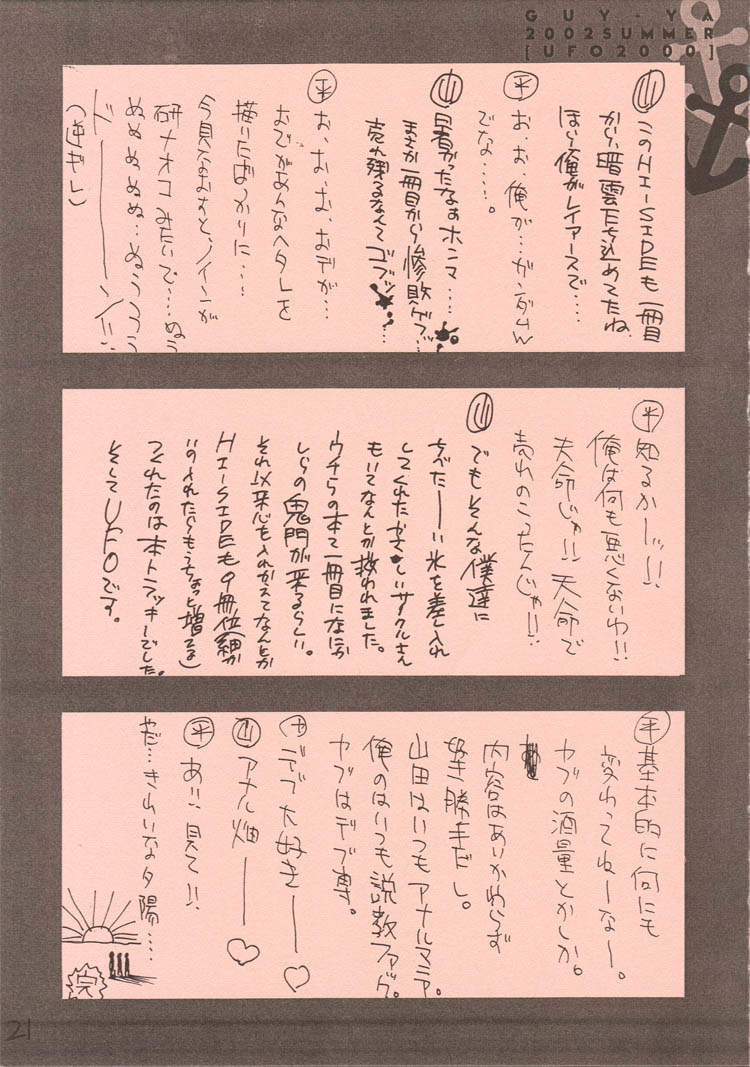 GUY-YA
2002SUMMER
[UFO2000]
山 このHI-SIDEも一冊目
から、暗雲たち込めてたね
ほら俺がレイアースで…
平 お、お、俺が…ガンダムW
でな……。
山 早かったなぁホンマ……
まさか一冊目から惨敗ゲフッ…
売れ残るなんてゴブッ…
平 お、お、お、おデが…
おでがあんなヘタレを
描いたばかりに…
今見なおすと、ノインが
研ナオコみたいで…ぬぅ
ぬぬぬぬぬ…ぬぅぅぅぅ
平 知るかーッ!!
俺は何も悪くないわ!!
天命じゃ!! 天命で
売れのこったんじゃ!!
山 でもそんな僕達に
あべたーーい氷を差し入れ
してくれたやさしいサークルさん
もいてなんとか救われました。
ウチらの本て一冊目になにか
しらの鬼門が来るらしい。
それ以来心を入れかえてなんとか
HI-SIDEも9冊位(細か
いの入れたらもうちょっと増える)
つくれたのは本トラッキーでした。
そしてUFOです。
平 基本的に何にも
変わってねーなー。
ヤブの酒量とかしか。
内容はあいかわらず
好き勝手だし。
山田はいつもアナルマニア。
俺のはいつも説教ファック。
ヤブはデブ専。
ヤ デブ大好きー♡
山 アナル畑ー♡
平 あ!! 見て!!
やだ…きれいな夕陽……
完
21